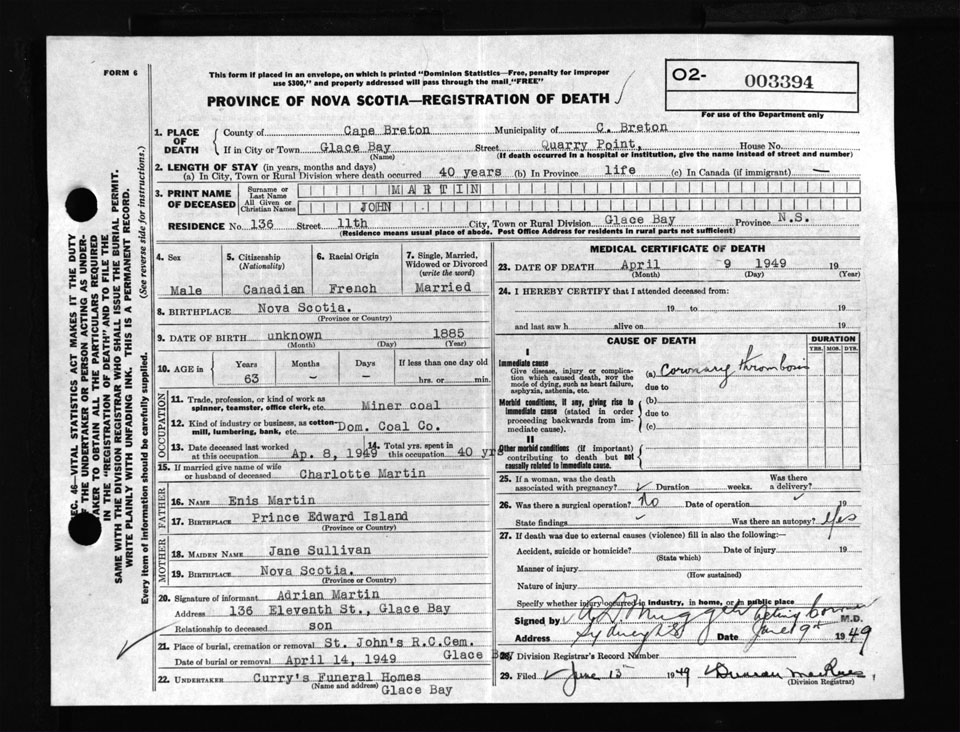 FORM 6
This form if placed in an envelope, on which is printed "Dominion Statistics—Free, penalty for improper
use $300," and properly addressed will pass through the mail "FREE"
PROVINCE OF NOVA SCOTIA—REGISTRATION OF DEATH
O2- 003394
For use of the Department only
SEC. 46—VITAL STATISTICS ACT MAKES IT THE DUTY
OF THE UNDERTAKER OR PERSON ACTING AS UNDER-
TAKER TO OBTAIN ALL THE PARTICULARS REQUIRED
IN THE "REGISTRATION OF DEATH" AND TO FILE THE
SAME WITH THE DIVISION REGISTRAR WHO SHALL ISSUE THE BURIAL PERMIT.
WRITE PLAINLY WITH UNFADING INK. THIS IS A PERMANENT RECORD.
Every item of information should be carefully supplied. (See reverse side for instructions.)
1. PLACE OF DEATH
County of Cape Breton Municipality of C. Breton
If in City or Town Glace Bay Street Quarry Point, House No.
(Name) (If death occurred in a hospital or institution, give the name instead of street and number)
2. LENGTH OF STAY (in years, months and days)
(a) In City, Town or Rural Division where death occurred 40 years (b) In Province life (c) In Canada (if immigrant) —
3. PRINT NAME OF DECEASED
Surname or Last Name MARTIN
All Given or Christian Names JOHN
RESIDENCE No. 136 Street 11th City, Town or Rural Division Glace Bay Province N.S.
(Residence means usual place of abode. Post Office Address for residents in rural parts not sufficient)
4. Sex
Male
5. Citizenship (Nationality)
Canadian
6. Racial Origin
French
7. Single, Married, Widowed or Divorced (write the word)
Married
8. BIRTHPLACE Nova Scotia.
(Province or Country)
9. DATE OF BIRTH unknown 1885
(Month) (Day) (Year)
10. AGE in Years Months Days If less than one day old
63 – – hrs. or min.
OCCUPATION
11. Trade, profession, or kind of work as
spinner, teamster, office clerk, etc. Miner coal
12. Kind of industry or business, as cotton-
mill, lumbering, bank, etc. Dom. Coal Co.
13. Date deceased last worked at this occupation Ap. 8, 1949
14. Total yrs. spent in this occupation 40 yrs
15. If married give name of wife or husband of deceased Charlotte Martin
FATHER
16. NAME Enis Martin
17. BIRTHPLACE Prince Edward Island
(Province or Country)
MOTHER
18. MAIDEN NAME Jane Sullivan
19. BIRTHPLACE Nova Scotia.
(Province or Country)
20. Signature of informant Adrian Martin
Address 136 Eleventh St., Glace Bay
Relationship to deceased son
21. Place of burial, cremation or removal St. John's R.C.Cem.
Glace Bay
Date of burial or removal April 14, 1949
22. UNDERTAKER Curry's Funeral Homes
(Name and address) Glace Bay
MEDICAL CERTIFICATE OF DEATH
23. DATE OF DEATH April 9 1949 19
(Month) (Day) (Year)
24. I HEREBY CERTIFY that I attended deceased from:
19 to 19
and last saw h alive on 19
CAUSE OF DEATH
DURATION
YRS. MOS. DYS.
I
Immediate cause
Give disease, injury or complica-
tion which caused death, not the
mode of dying, such as heart failure,
asphyxia, asthenia, etc.
(a) Coronary thrombosis
due to
Morbid conditions, if any, giving rise to
immediate cause (stated in order
proceeding backwards from im-
mediate cause).
(b)
due to
(c)
II
Other morbid conditions (if important)
contributing to death but not
causally related to immediate cause.
25. If a woman, was the death
associated with pregnancy? Duration weeks. Was there a delivery?
26. Was there a surgical operation? No Date of operation 19
State findings Was there an autopsy? Yes
27. If death was due to external causes (violence) fill in also the following:—
Accident, suicide or homicide? Date of injury 19
(State which)
Manner of injury
(How sustained)
Nature of injury
Specify whether injury occurred in industry, in home, or in public place
Signed by M.D.
Address Sydney NS Date June 9th 1949
28. Division Registrar's Record Number
29. Filed June 15 1949 Duncan MacRae
(Division Registrar)